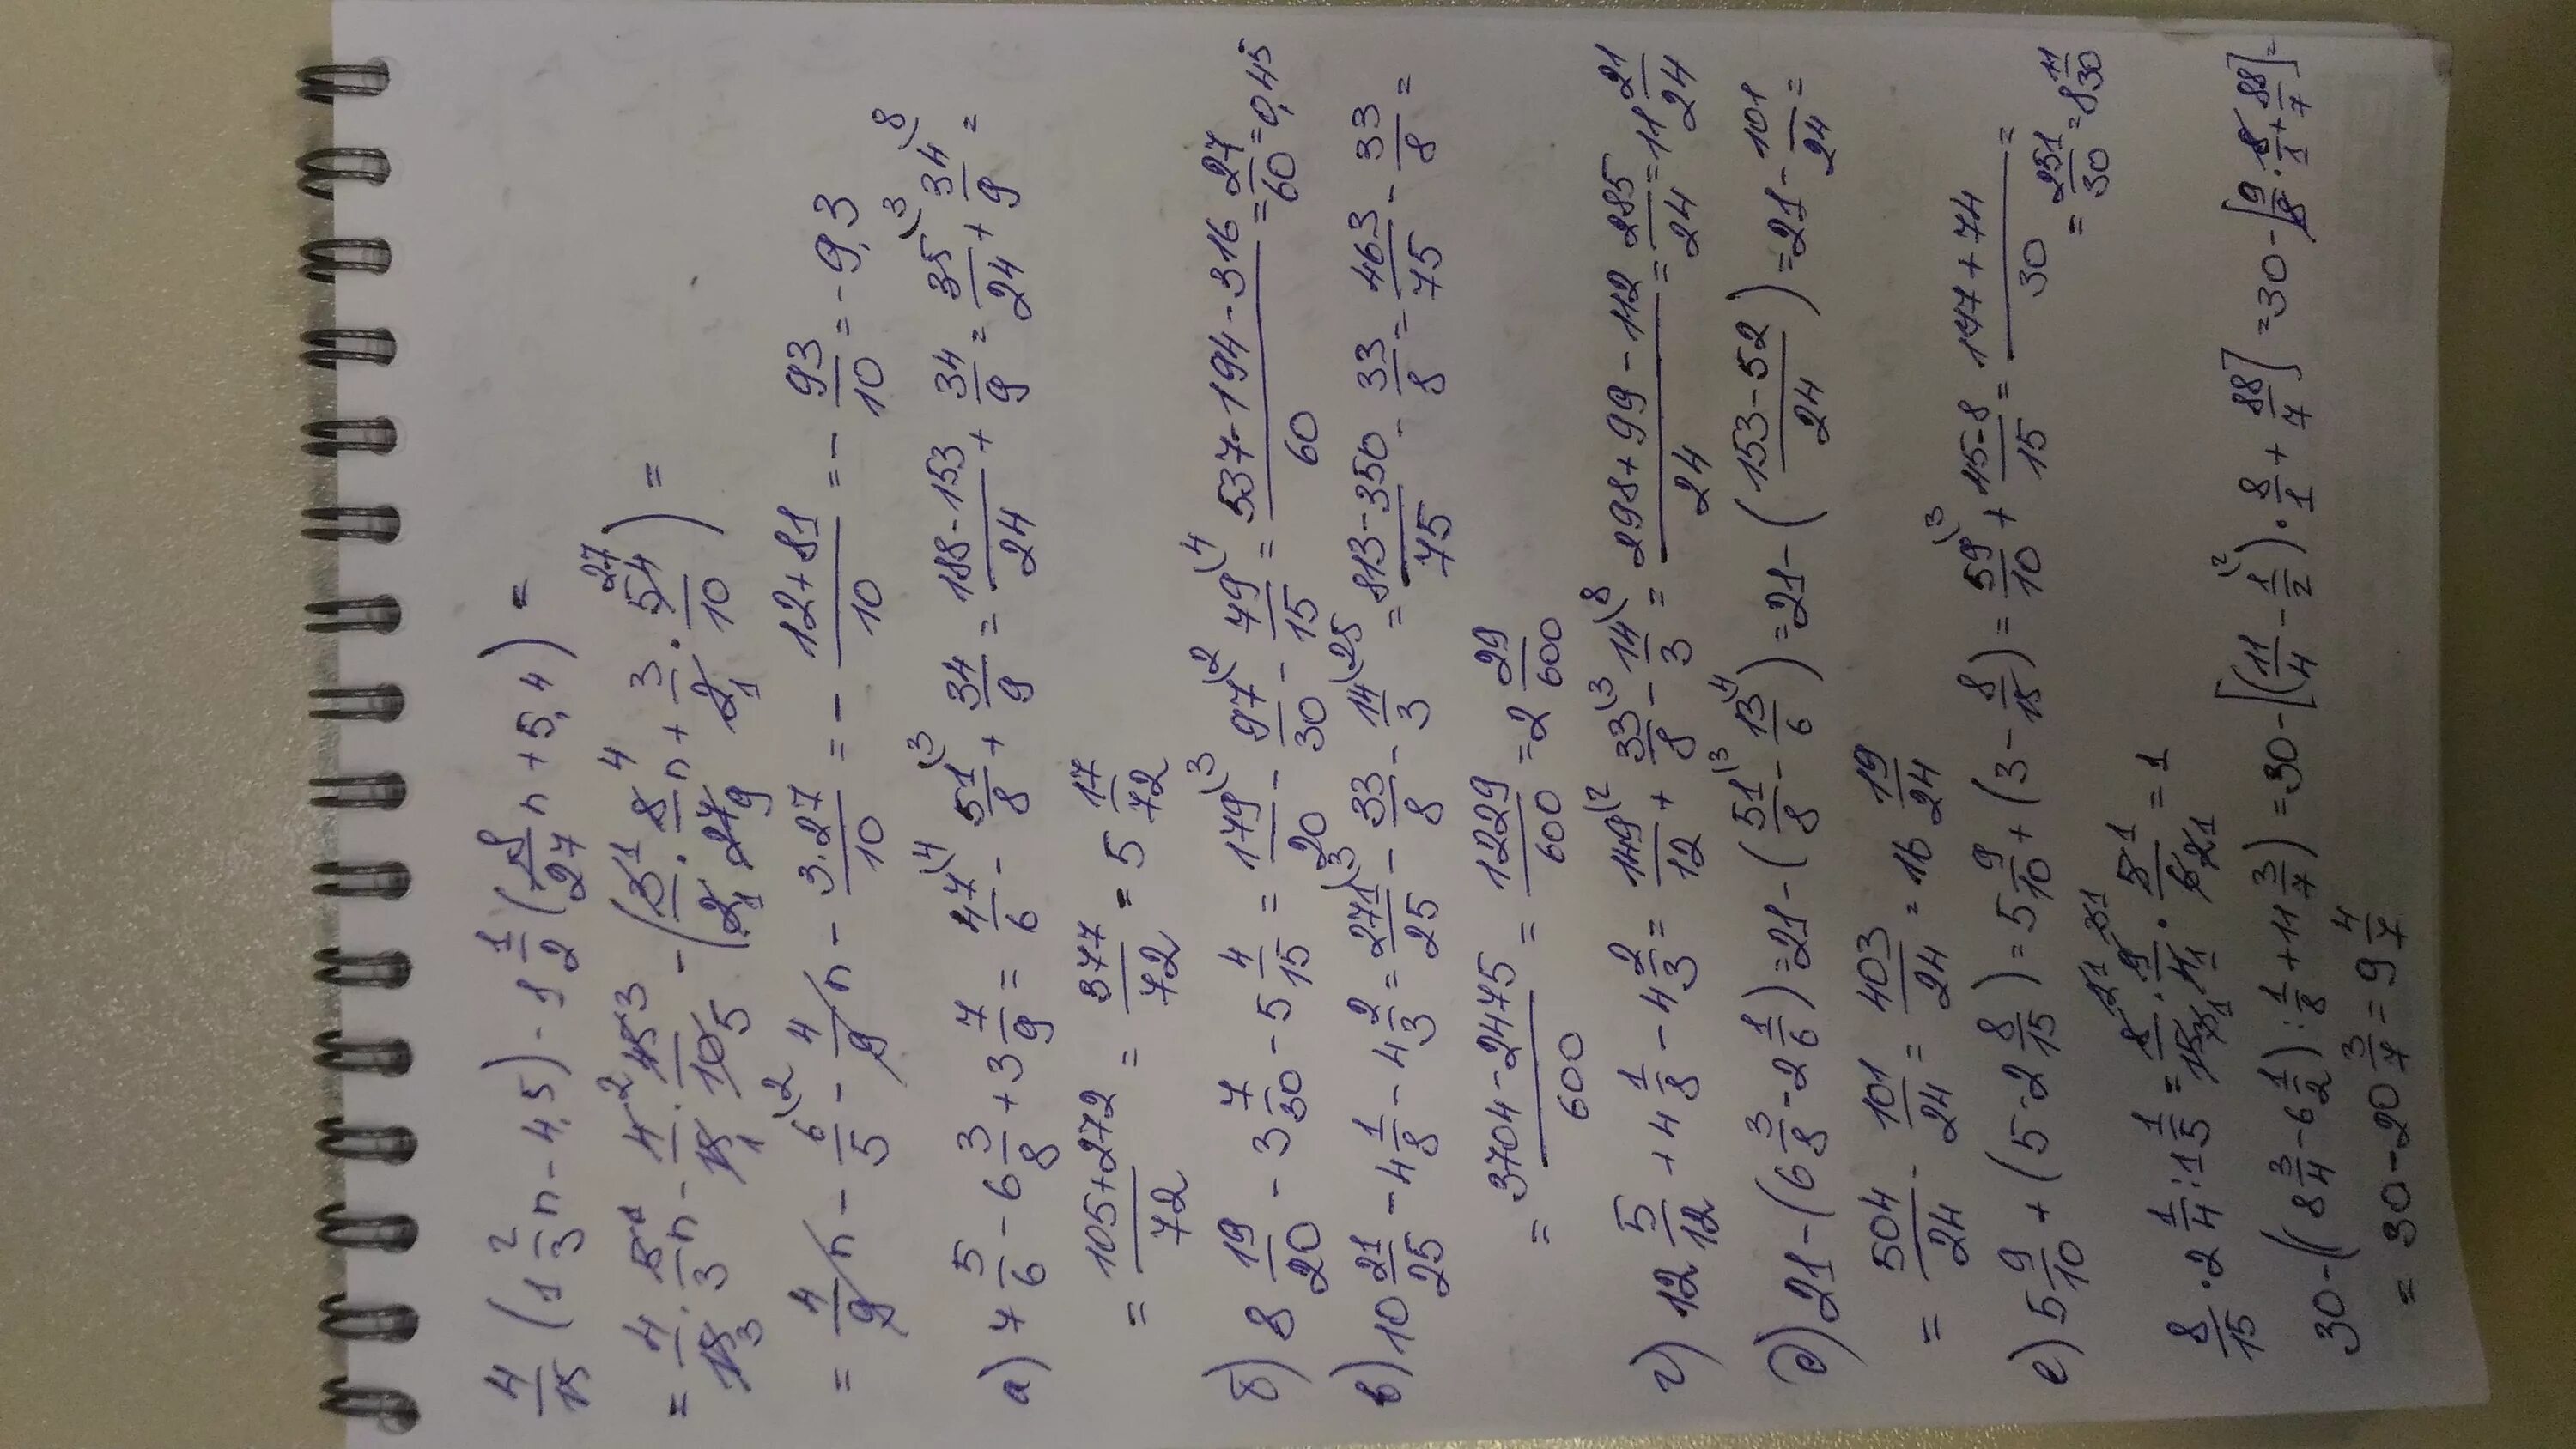 4/15 (1 2/3 n - 4,5) - 1 1/2 (8/27 n + 5,4) =
= 4/15 · 5/3 n - 4/15 · 45/10 - (3/2 · 8/27 n + 3/2 · 54/10) =
= 4/9 n - 6/5 - 4/9 n - 3·27/10 = - 12+81/10 = - 93/10 = -9,3
а) 7 5/6 - 6 3/8 + 3 7/9 = 47/6 - 51/8 + 34/9 = 188-153/24 + 34/9 = 35/24 + 34/9 =
= 105+272/72 = 377/72 = 5 17/72
б) 8 19/20 - 3 7/30 - 5 4/15 = 179/20 - 97/30 - 79/15 = 537-194-316/60 = 27/60 = 0,45
в) 10 21/25 - 4 1/8 - 4 2/3 = 271/25 - 33/8 - 14/3 = 813-350/75 - 33/8 = 463/75 - 33/8 =
= 3704-2475/600 = 1229/600 = 2 29/600
г) 12 5/12 + 4 1/8 - 4 2/3 = 149/12 + 33/8 - 14/3 = 298+99-112/24 = 285/24 = 11 21/24
д) 21 - (6 3/8 - 2 1/6) = 21 - (51/8 - 13/6) = 21 - (153-52/24) = 21 - 101/24 =
= 504/24 - 101/24 = 403/24 = 16 19/24
е) 5 9/10 + (5 - 2 8/15) = 5 9/10 + (3 - 8/15) = 59/10 + 45-8/15 = 177+74/30 =
= 251/30 = 8 11/30
8/15 · 2 1/4 : 1 1/5 = 8/15 · 9/4 · 5/6 = 1
30 - ((8 3/4 - 6 1/2) : 1/8 + 11 3/7) = 30 - [(11/4 - 1/2) · 8/1 + 88/7] = 30 - [9/8 · 8/1 + 88/7] =
= 30 - 20 3/7 = 9 4/7